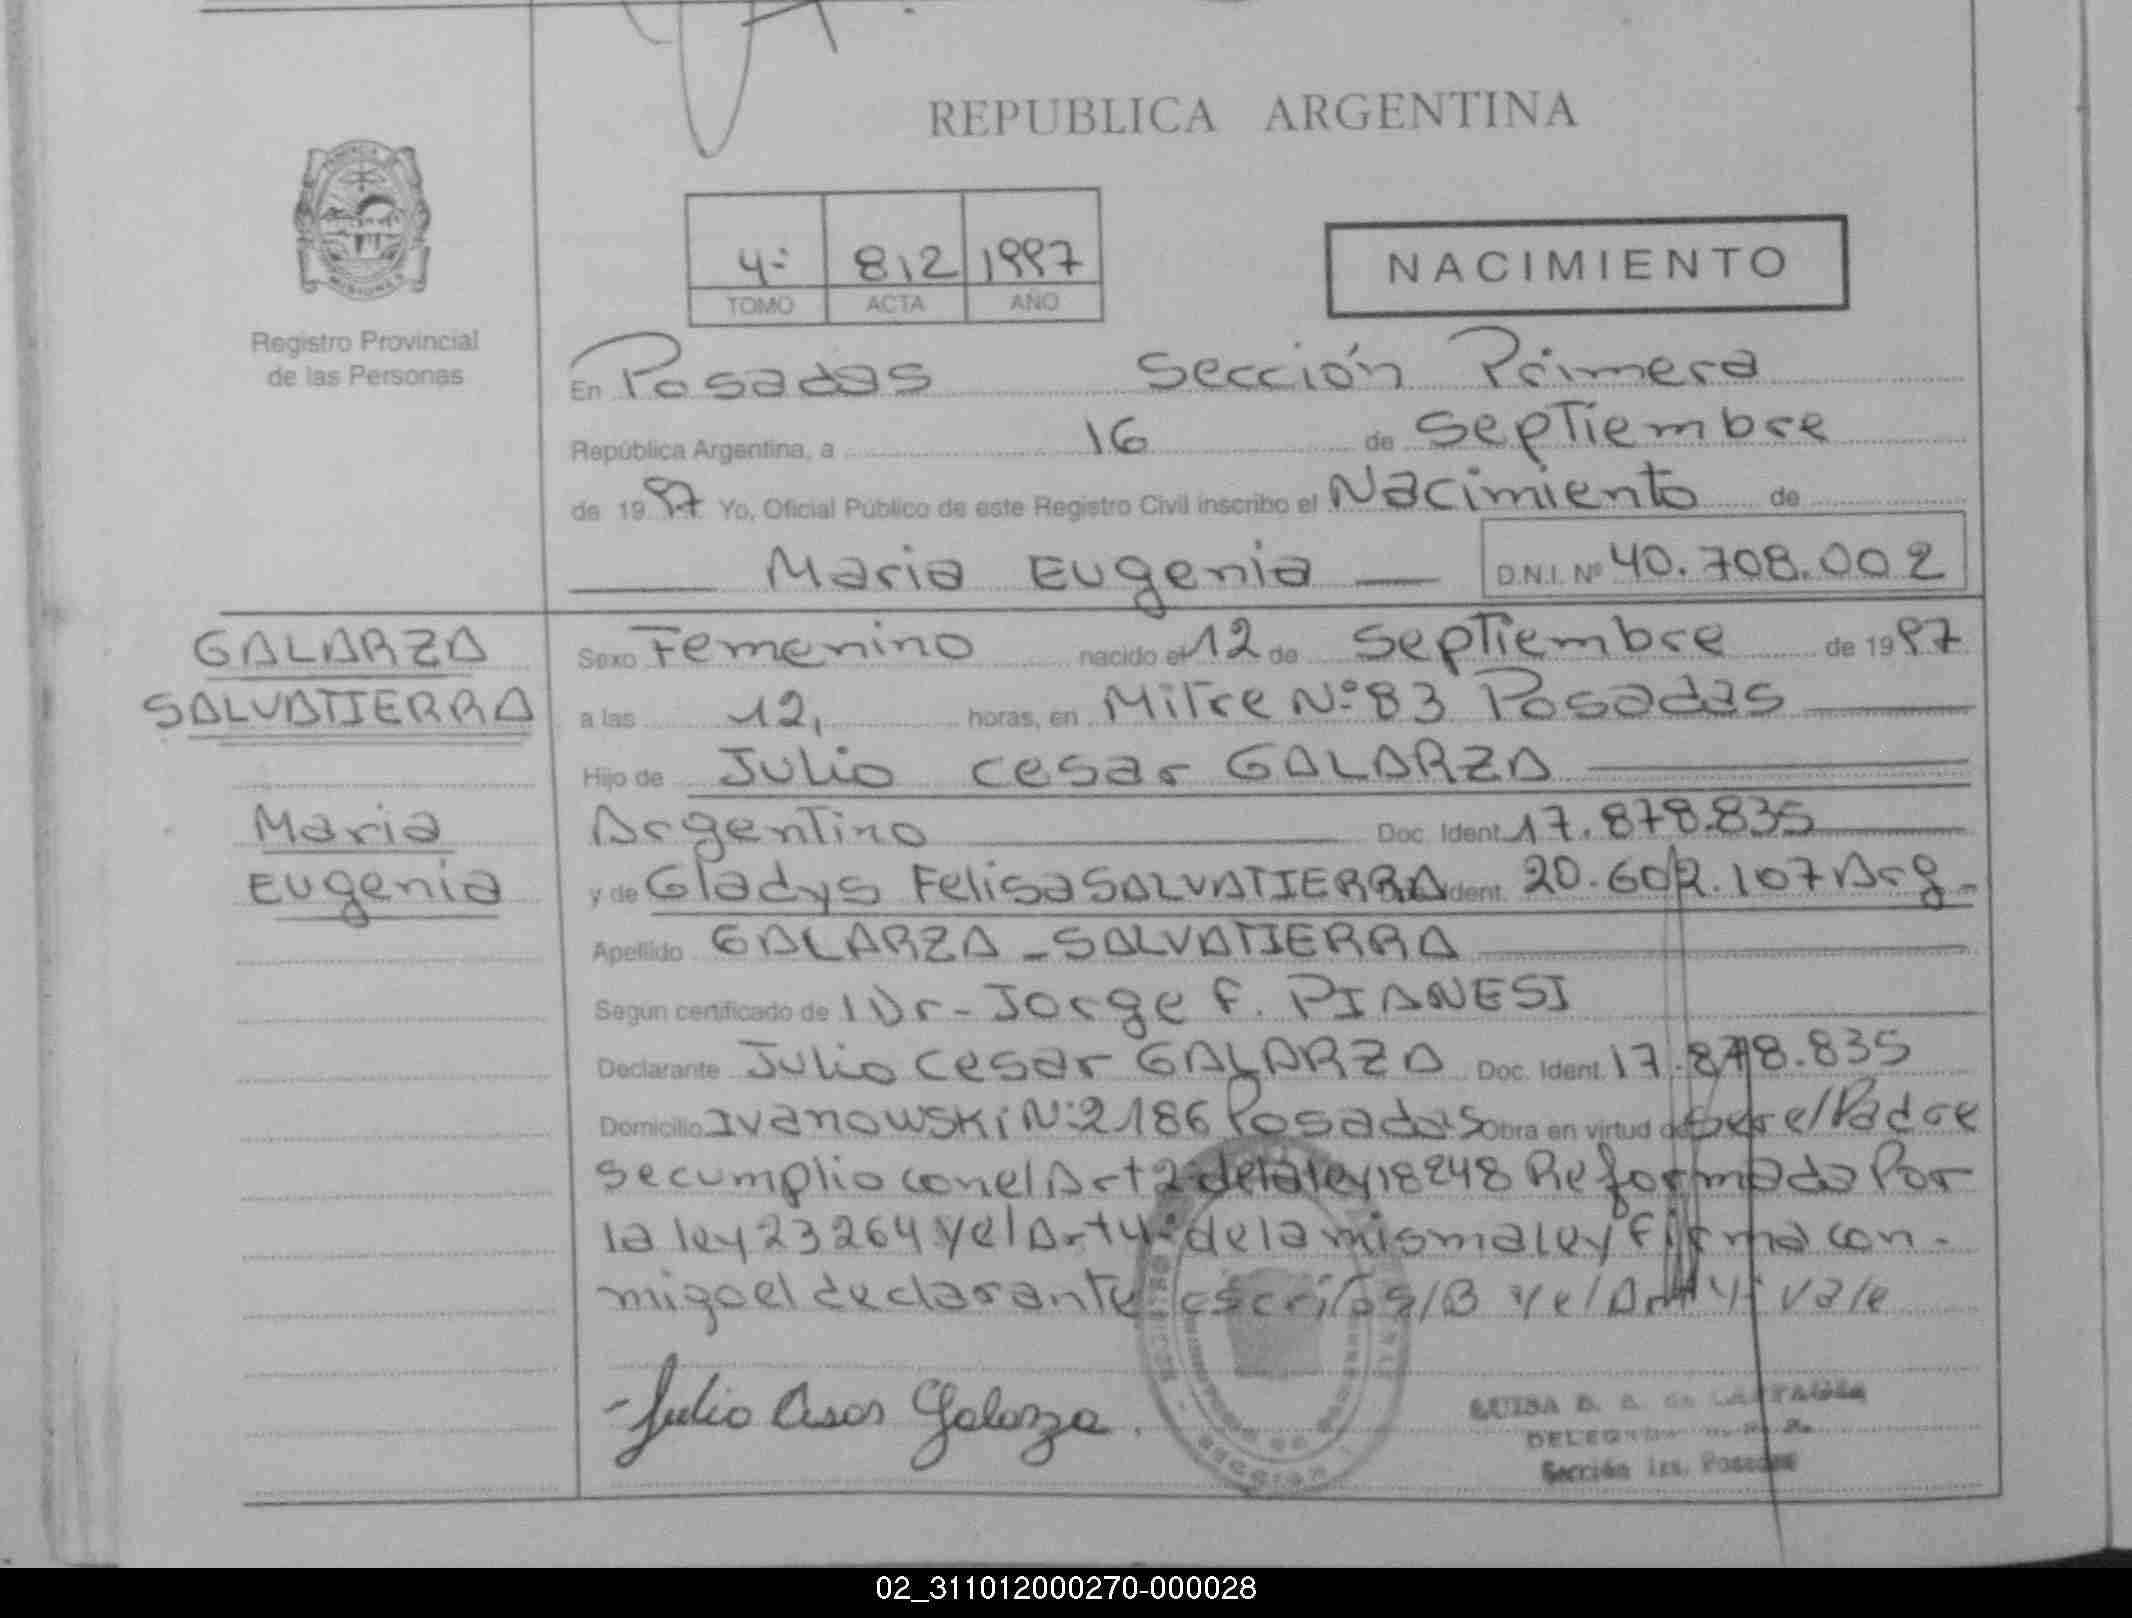 REPUBLICA ARGENTINA
4º 812 1997
TOMO ACTA AÑO
NACIMIENTO
Registro Provincial
de las Personas
En Posadas Sección Primera
República Argentina, a 16 de Septiembre
de 1997 Yo, Oficial Público de este Registro Civil inscribo el Nacimiento de
Maria Eugenia D.N.I. Nº 40.708.002
GALARZA
SALVATIERRA
Maria
Eugenia
Sexo Femenino nacido el 12 de Septiembre de 1997
a las 12, horas, en Mitre Nº 83 Posadas
Hijo de Julio Cesar GALARZA
Argentino Doc. Ident. 17.878.835
y de Gladys Felisa SALVATIERRA Ident. 20.602.107 Arg-
Apellido GALARZA - SALVATIERRA
Según certificado de Dr- Jorge F. PIANESI
Declarante Julio Cesar GALARZA Doc. Ident. 17.878.835
Domicilio Ivanowski Nº 2186 Posadas Obra en virtud de Ser el Padre
se cumplio con el Art 2 de la ley 18248 Reformado Por
la ley 23264 y el Art 4º de la misma ley Firma con-
migo el declarante escrito s/B y el Art 4º vale
Julio Cesar Galarza.
LUISA
Sección 1ra. Posadas
02_311012000270-000028